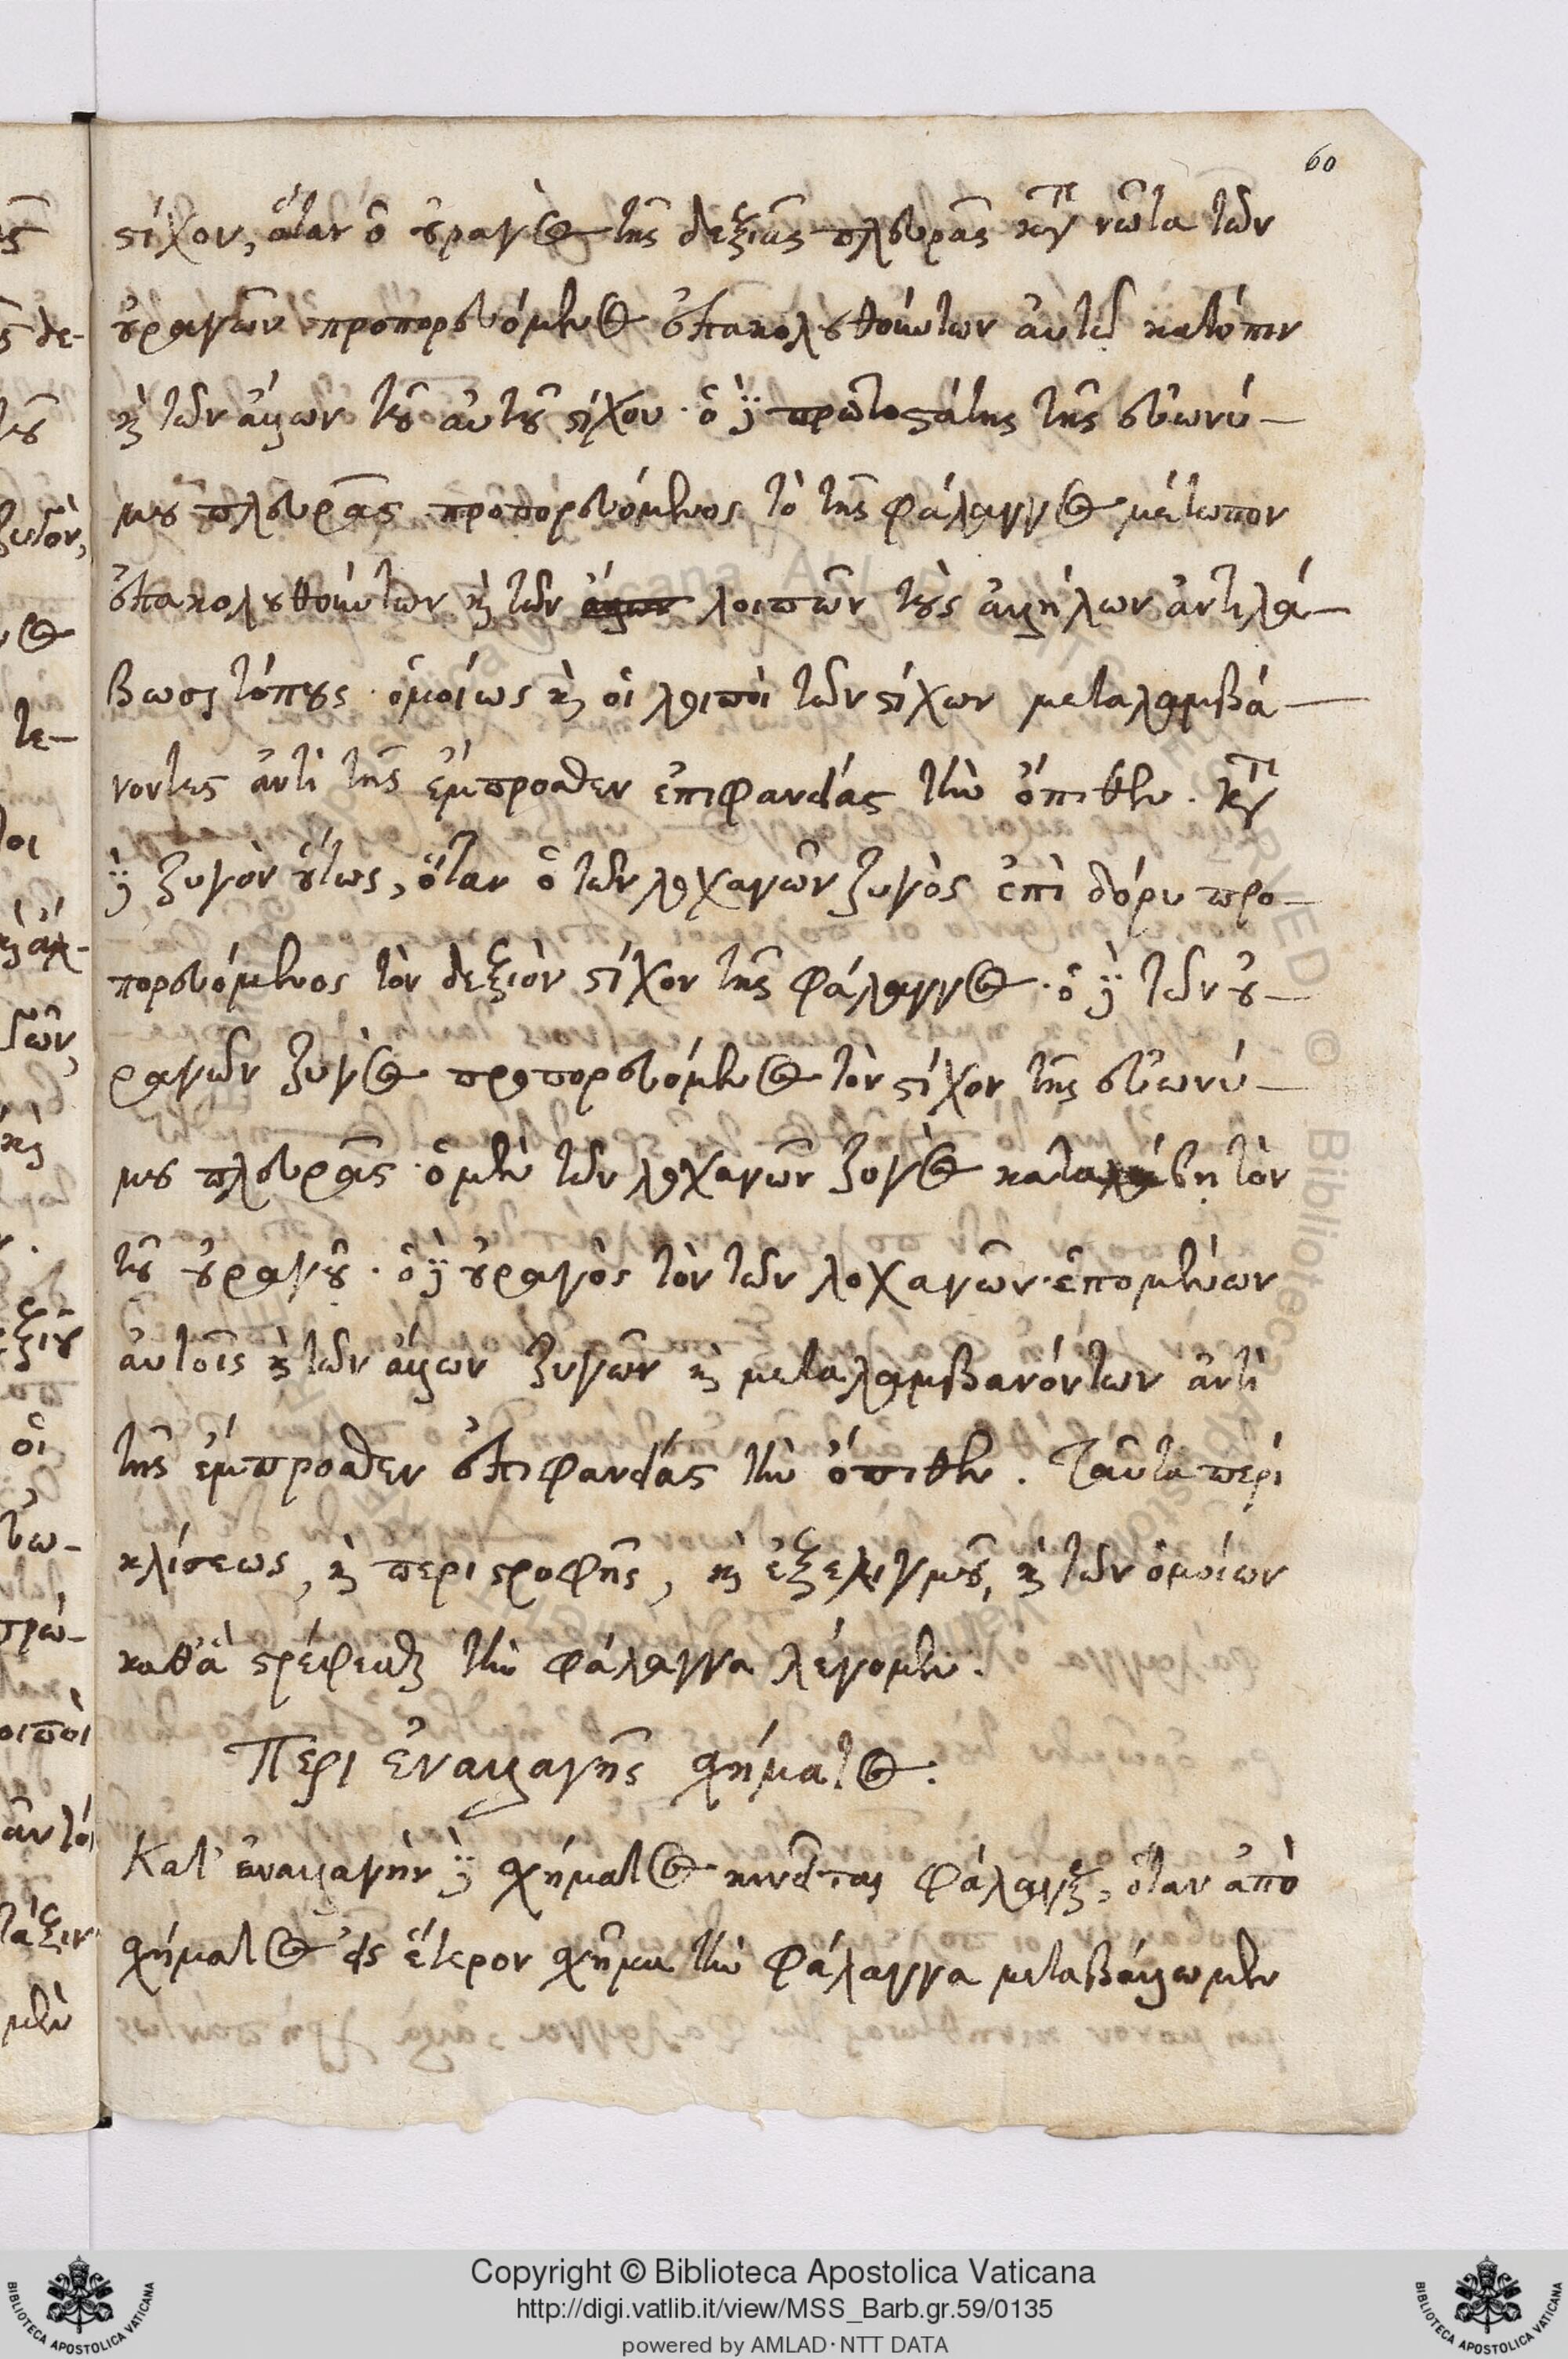 60
στίχον, ὅταν ὁ οὐραγὸς τῆς δεξιᾶς πλευρᾶς κατὰ νῶτα τῶν
οὐραγῶν προπορευόμενος ἐπακολουθούντων αὐτῷ κατόπιν
καὶ τῶν ἄλλων τοῦ αὐτοῦ στίχου· ὁ δὲ πρωτοστάτης τῆς εὐωνύ-
μου πλευρᾶς προπορευόμενος τὸ τῆς φάλαγγος μέτωπον
ἐπακολουθούντων καὶ τῶν ἄλλων λοιπῶν τοὺς ἀλλήλων ἀντιλά-
βωσι τόπους· ὁμοίως καὶ οἱ λοιποὶ τῶν στίχων μεταλαμβά-
νοντες ἀντὶ τῆς ἔμπροσθεν ἐπιφανείας τὴν ὄπισθεν. κατὰ
δὲ ζυγὸν οὕτως, ὅταν ὁ τῶν λοχαγῶν ζυγὸς ἐπὶ δόρυ προ-
πορευόμενος τὸν δεξιὸν στίχον τῆς φάλαγγος· ὁ δὲ τῶν οὐ-
ραγῶν ζυγὸς προπορευόμενος τὸν στίχον τῆς εὐωνύ-
μου πλευρᾶς· ὁ μὲν τῶν λοχαγῶν ζυγὸς καταλάβῃ τὸν
τοῦ οὐραγοῦ· ὁ δὲ οὐραγὸς τὸν τῶν λοχαγῶν· ἑπομένων
αὐτοῖς καὶ τῶν ἄλλων ζυγῶν καὶ μεταλαμβανόντων ἀντὶ
τῆς ἔμπροσθεν ἐπιφανείας τὴν ὄπισθεν. Ταῦτα περὶ
κλίσεως, καὶ περιστροφῆς, καὶ ἐξελιγμοῦ, καὶ τῶν ὁμοίων
καθ' ἃ στρέφεσθαι τὴν φάλαγγα λέγομεν.
Περὶ ἐναλλαγῆς σχήματος.
Κατ' ἐναλλαγὴν δὲ σχήματος κινεῖται φάλαγξ, ὅταν ἀπὸ
σχήματος εἰς ἕτερον σχῆμα τὴν φάλαγγα μεταβάλλωμεν
Copyright © Biblioteca Apostolica Vaticana
http://digi.vatlib.it/view/MSS_Barb.gr.59/0135
powered by AMLAD·NTT DATA
BIBLIOTECA APOSTOLICA VATICANA
BIBLIOTECA APOSTOLICA VATICANA